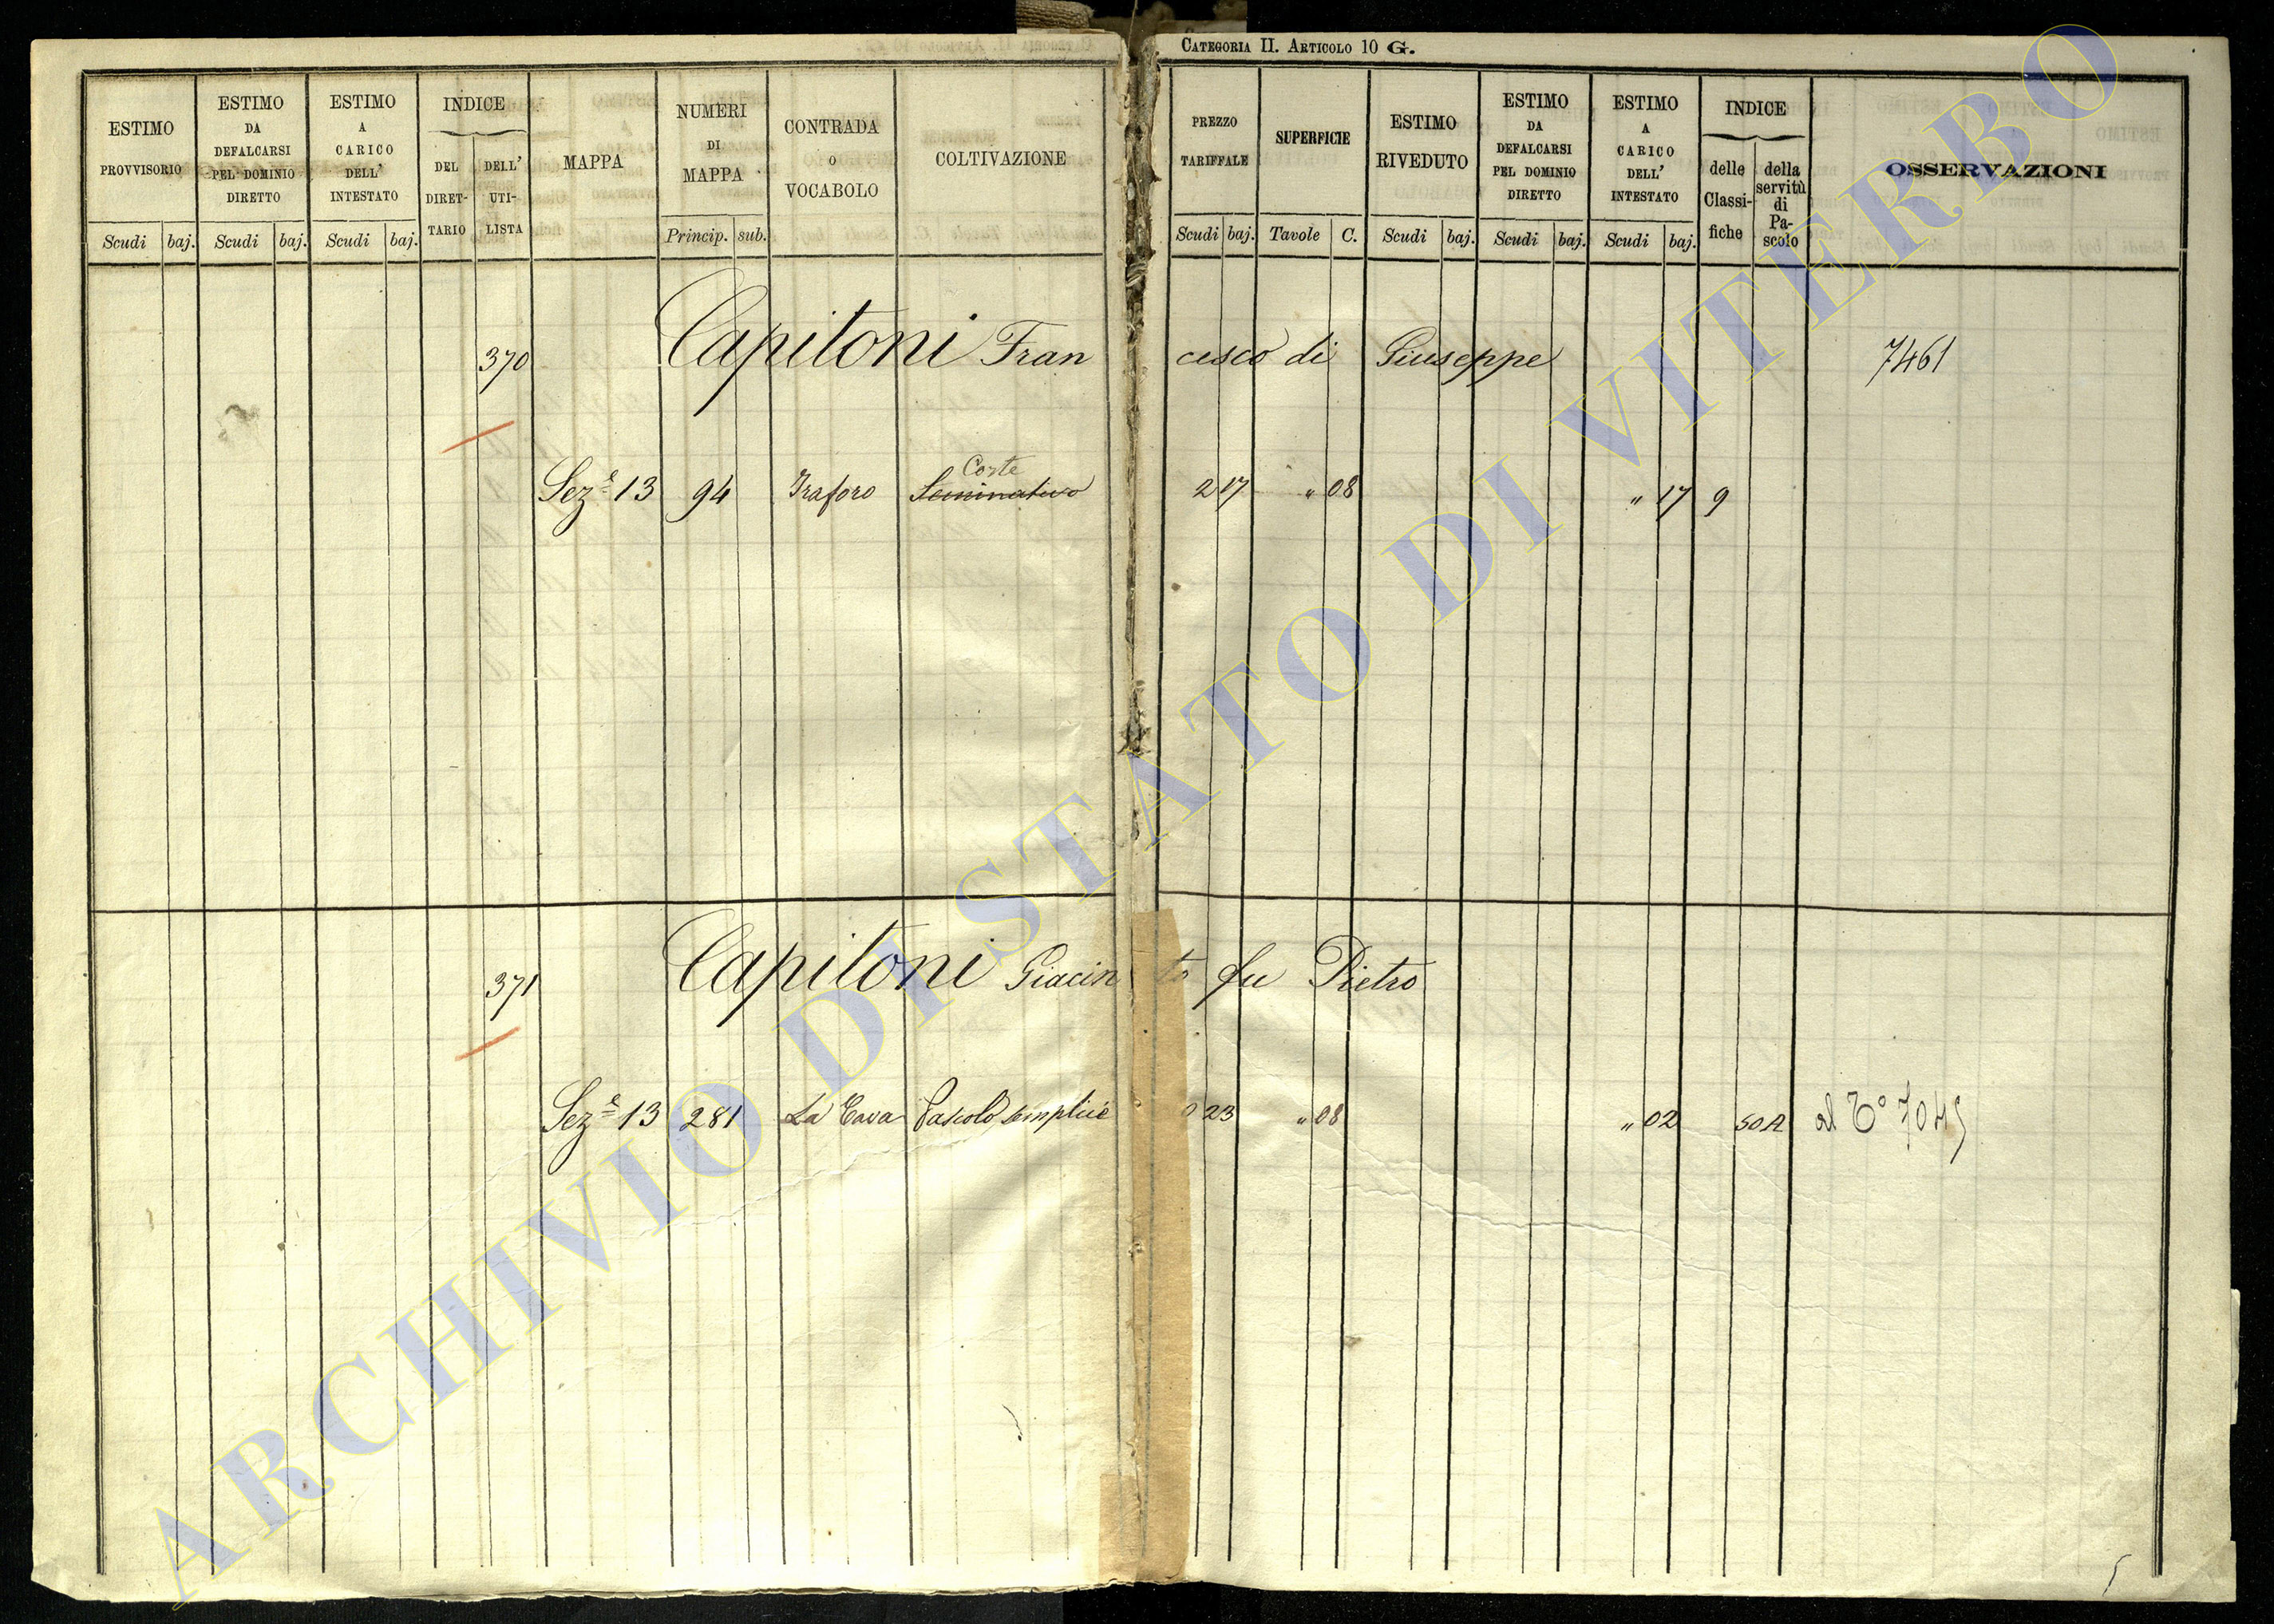 CATEGORIA II. ARTICOLO 10 G.
ESTIMO PROVVISORIO
Scudi baj.
ESTIMO DA DEFALCARSI PEL DOMINIO DIRETTO
Scudi baj.
ESTIMO A CARICO DELL' INTESTATO
Scudi baj.
INDICE
DEL DIRET-TARIO
DELL' UTI-LISTA
MAPPA
NUMERI DI MAPPA
Princip. sub.
CONTRADA O VOCABOLO
COLTIVAZIONE
PREZZO TARIFFALE
Scudi baj.
SUPERFICIE
Tavole C.
ESTIMO RIVEDUTO
Scudi baj.
ESTIMO DA DEFALCARSI PEL DOMINIO DIRETTO
Scudi baj.
ESTIMO A CARICO DELL' INTESTATO
Scudi baj.
INDICE
delle Classi-fiche
della servitù di Pa-scolo
OSSERVAZIONI
370 Capitoni Fran cesco di Giuseppe 7461
Corte
Sez.e 13 94 Traforo Seminativo 2 17 " 08 " 17 9
371 Capitoni Giacin to fu Pietro
Sez.e 13 281 La Cava Pascolo semplice 23 " 08 " 02 50A al T° 7045
ARCHIVIO DI STATO DI VITERBO